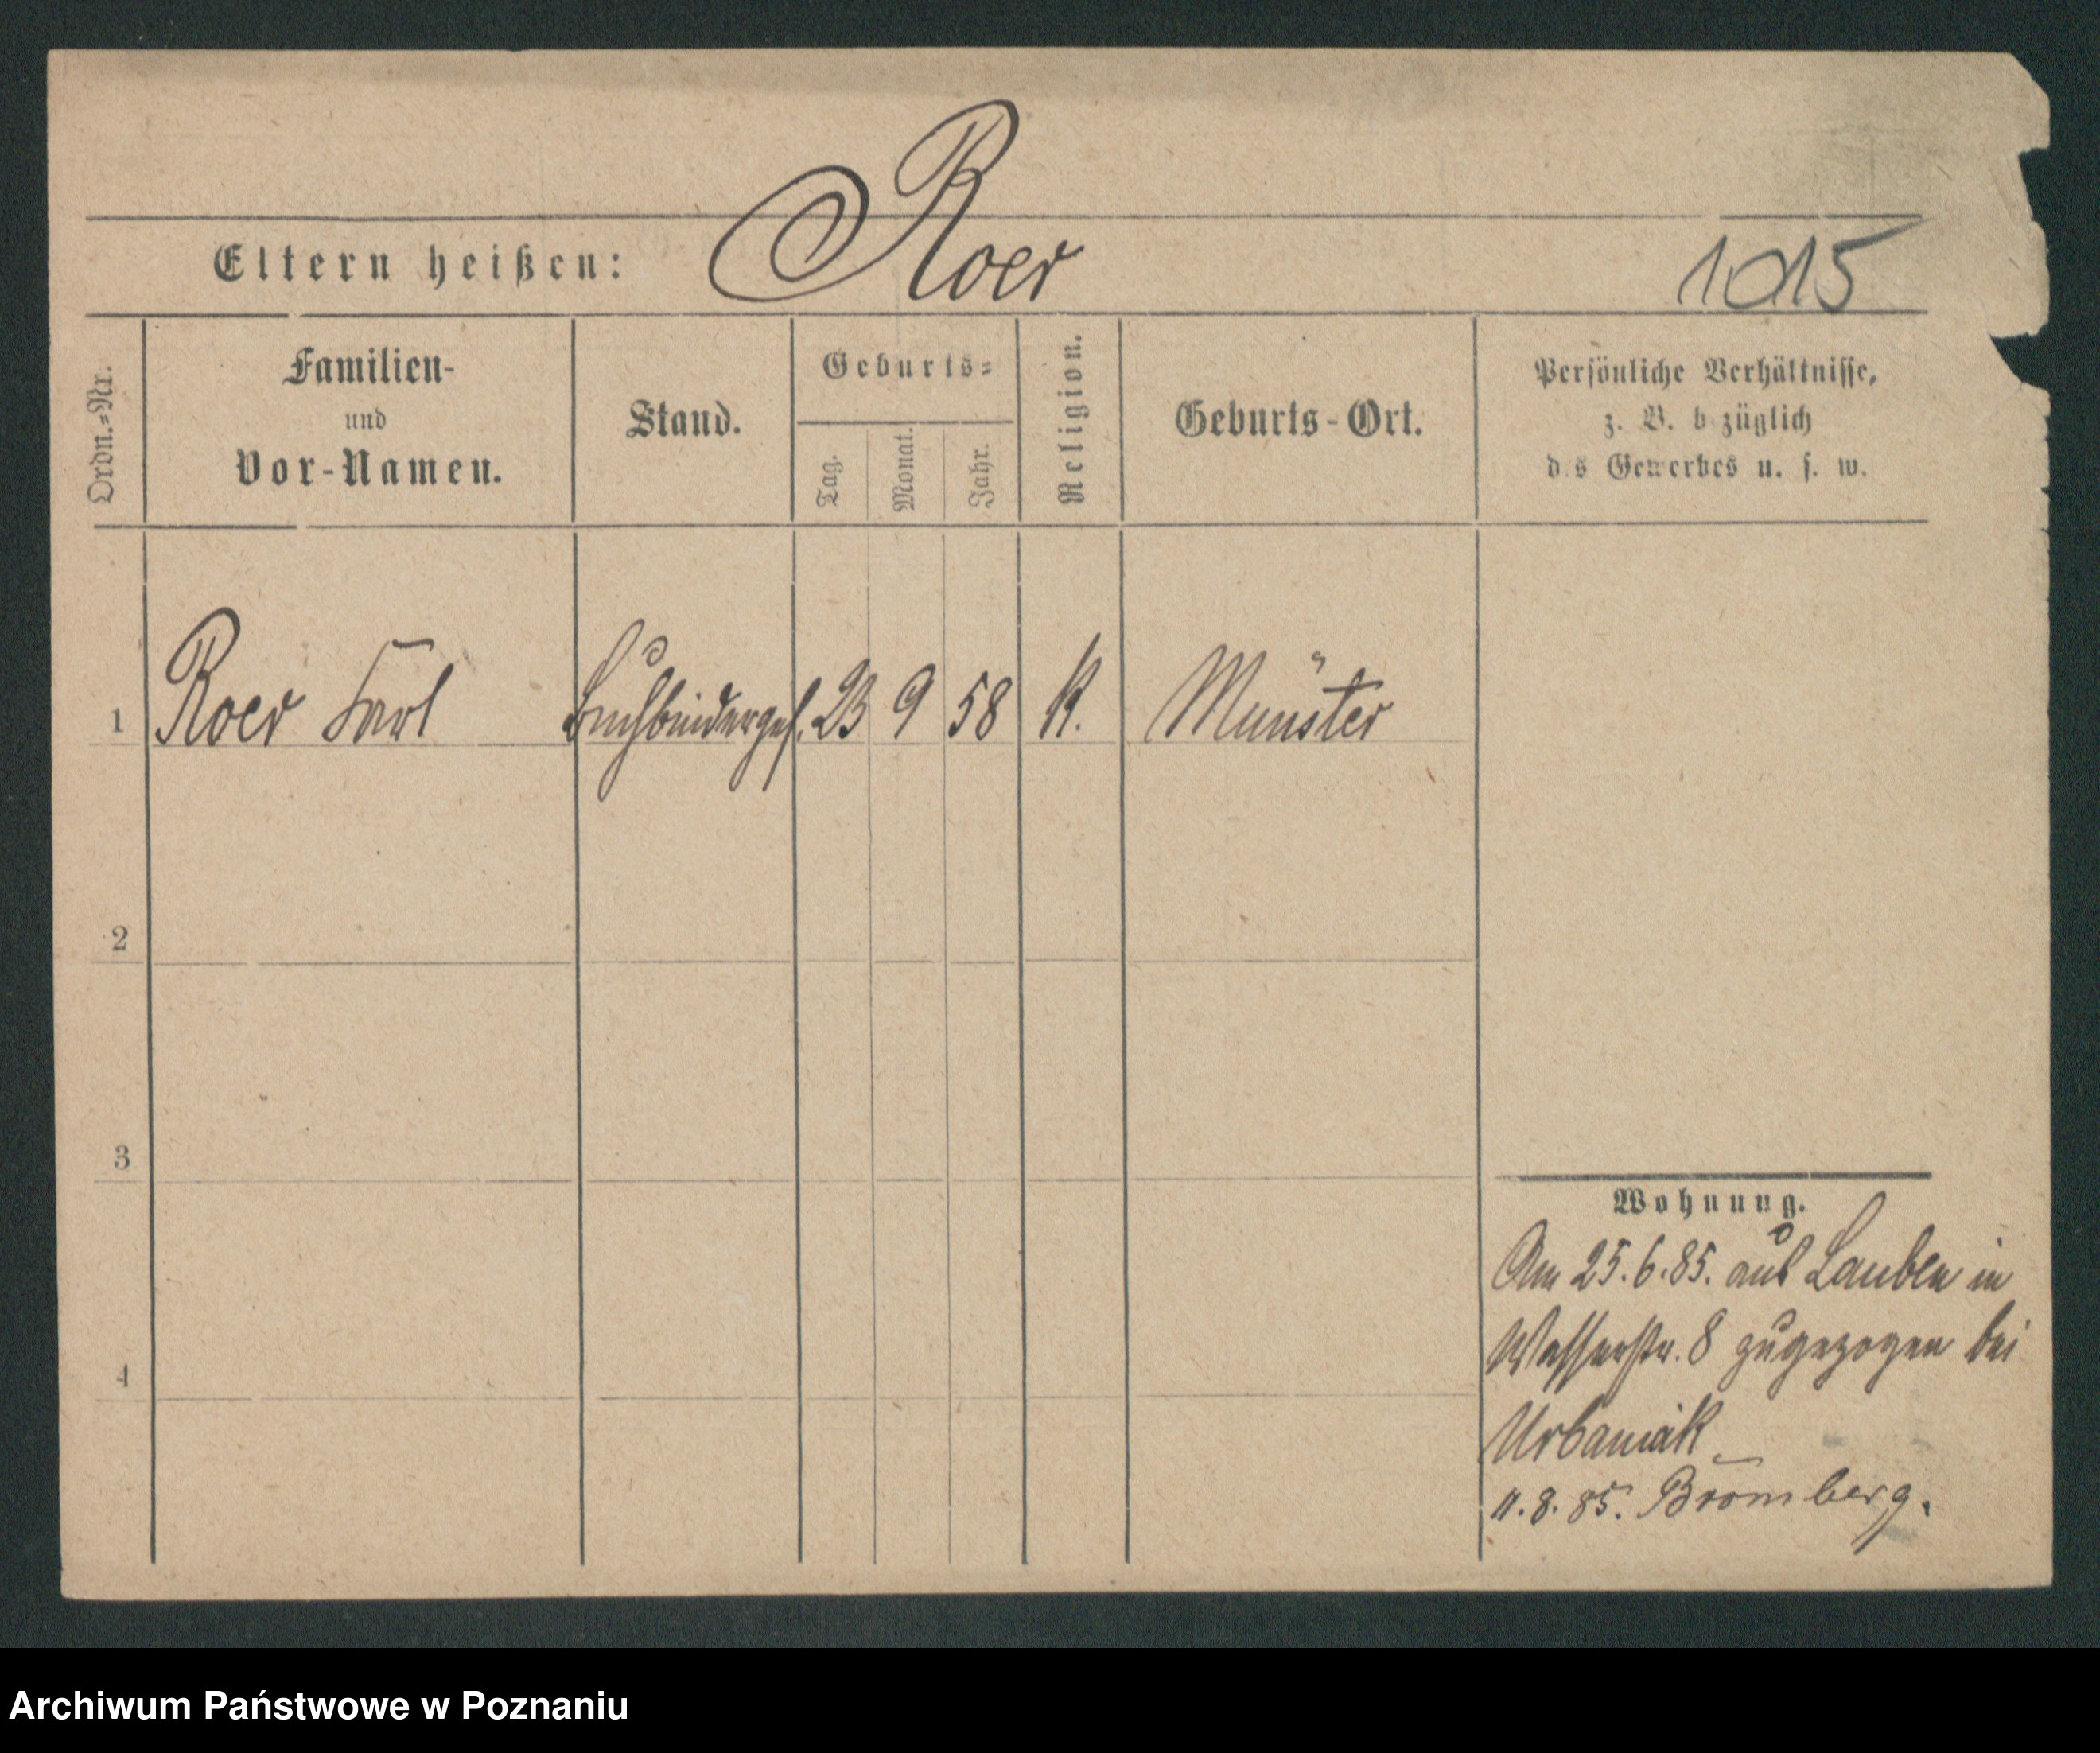 Eltern heißen: Roer
1015
Ordn.=Nr.
Familien-
und
Vor-Namen.
Stand.
Geburts=
Tag.
Monat.
Jahr.
Religion.
Geburts-Ort.
Persönliche Verhältnisse,
z. B. bezüglich
des Gewerbes u. s. w.
1 Roer Karl Buchbinderges. 23 9 58 K. Münster
2
3
4
Wohnung.
Am 25.6.85. aus Lauban in
Wasserstr. 8 zugezogen bei
Urbaniak
11.8.85. Bromberg.
Archiwum Państwowe w Poznaniu